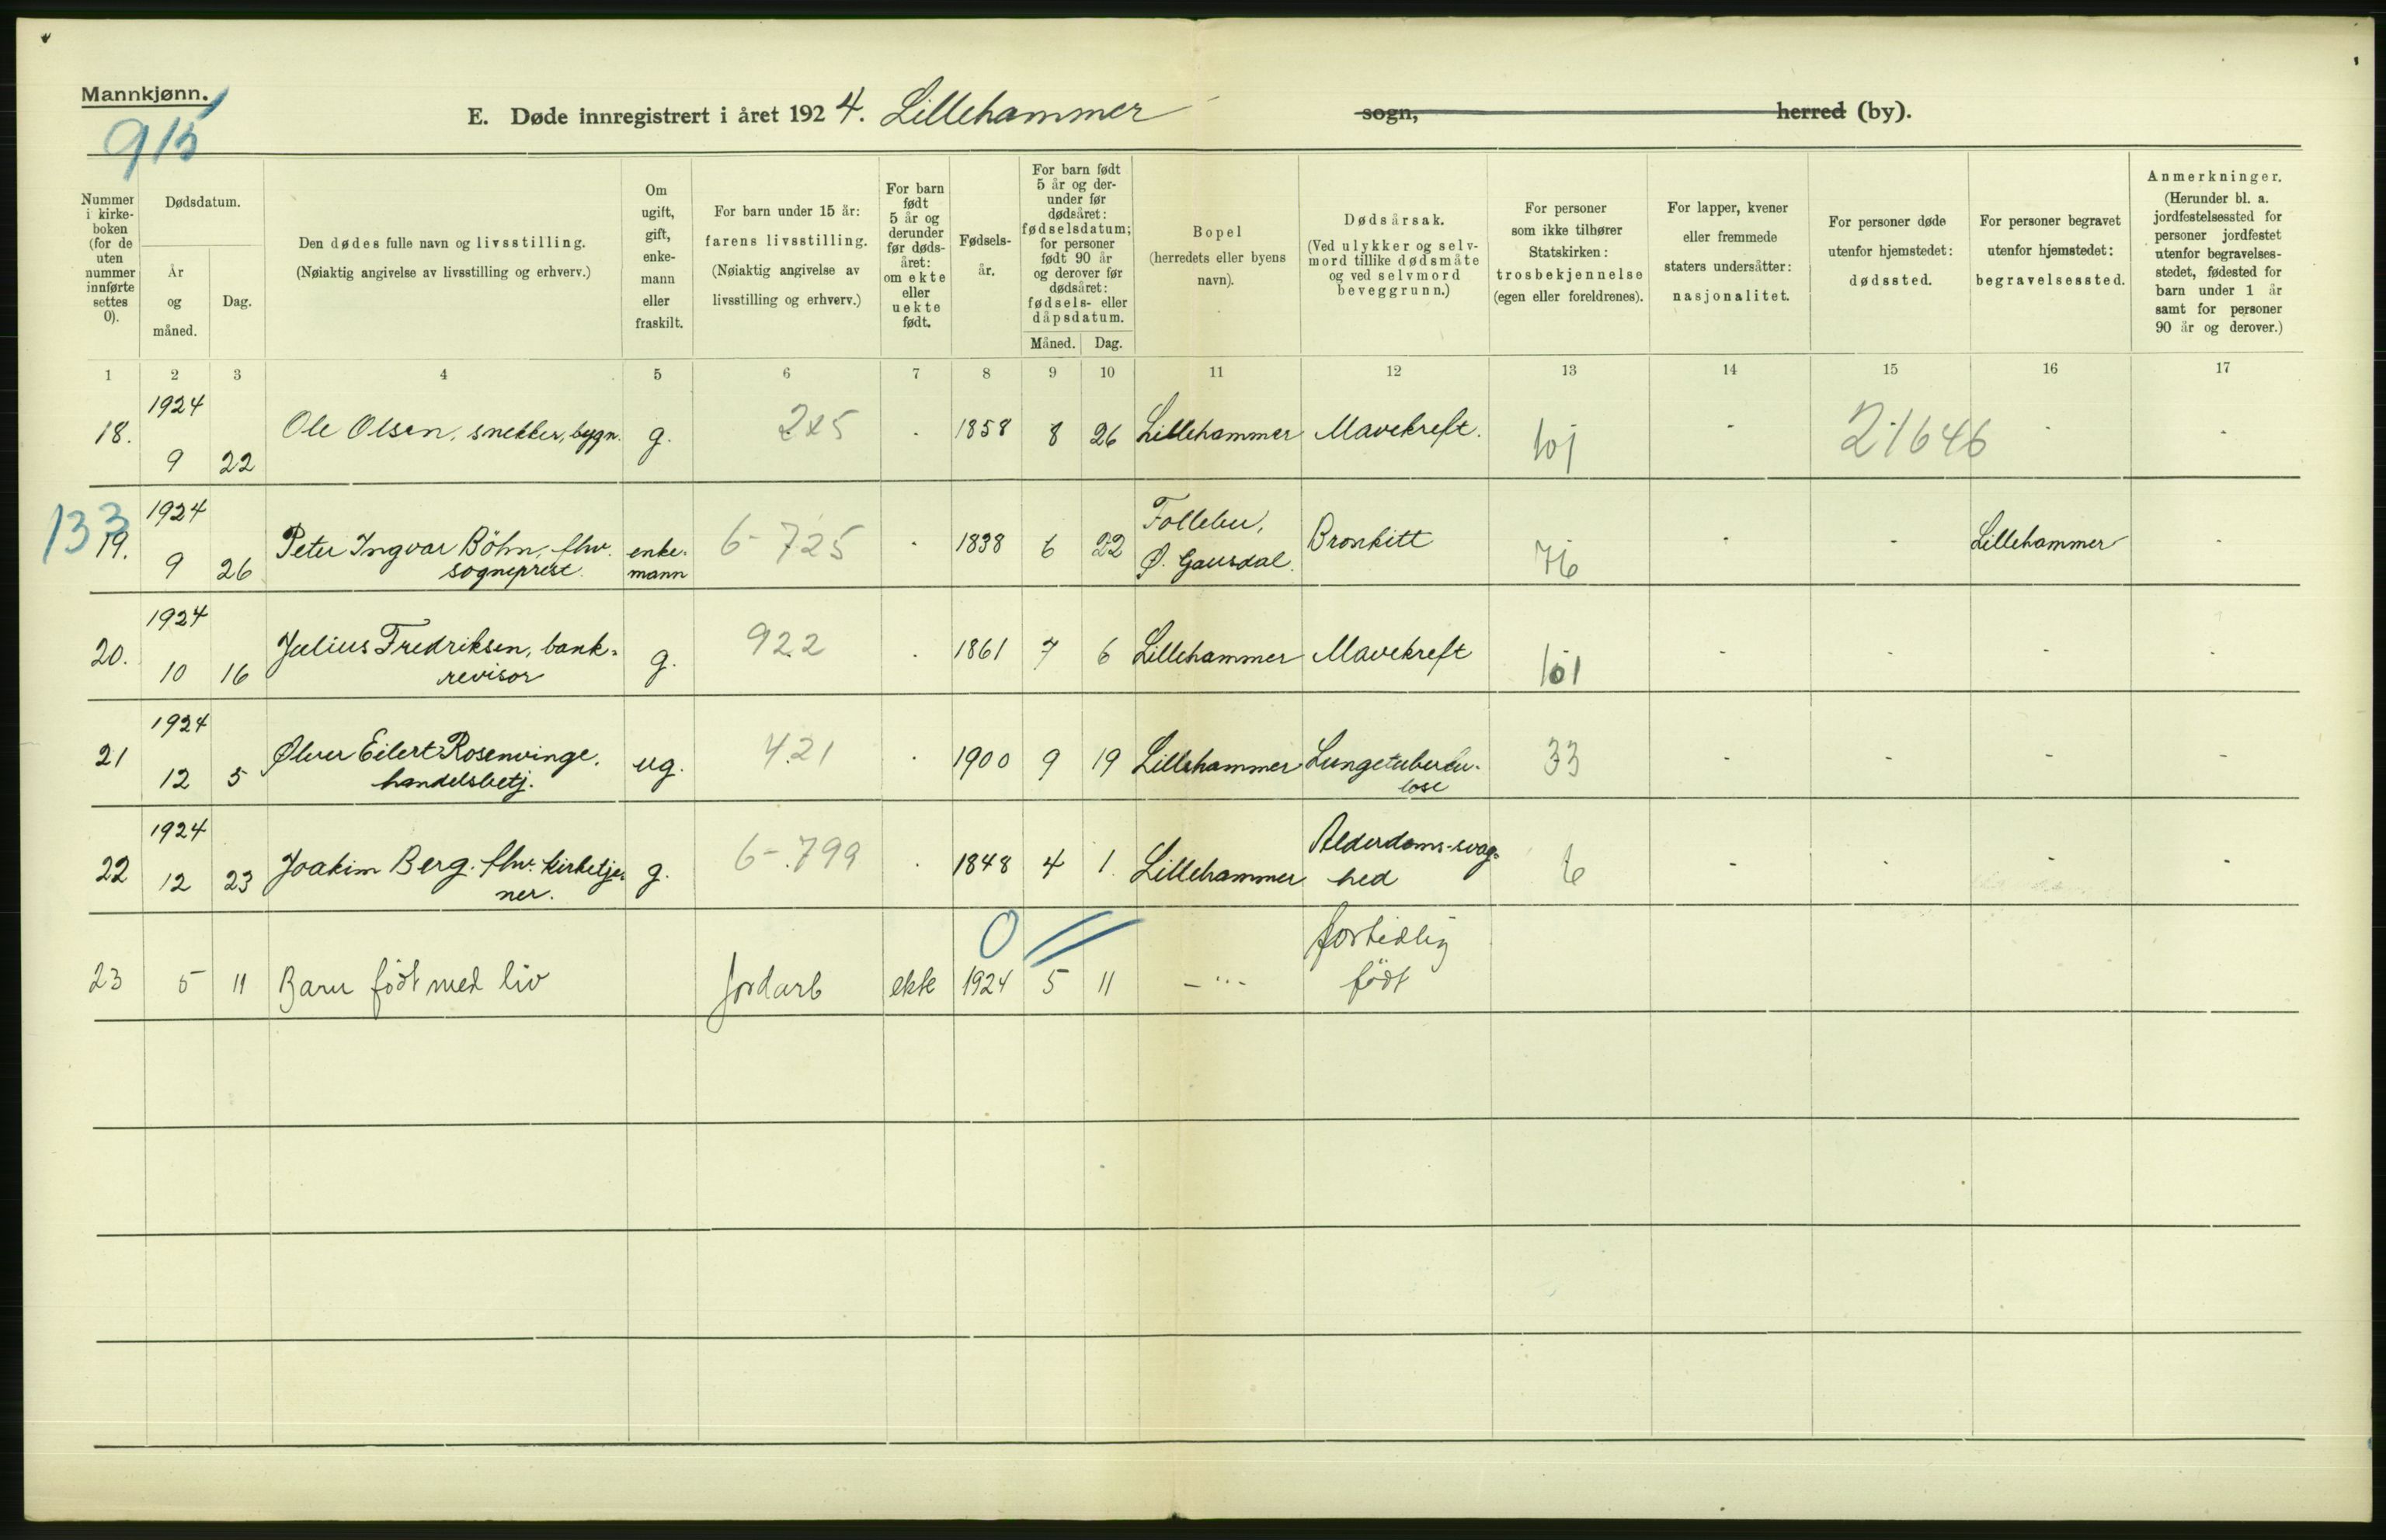 Mannkjønn.
915
E. Døde innregistrert i året 1924. Lillehammer sogn, herred (by).
Nummer i kirkeboken (for de uten nummer innførte settes 0).
Dødsdatum.
År og måned.
Dag.
Den dødes fulle navn og livsstilling.
(Nøiaktig angivelse av livsstilling og erhverv.)
Om ugift, gift, enkemann eller fraskilt.
For barn under 15 år: farens livsstilling.
(Nøiaktig angivelse av livsstilling og erhverv.)
For barn født 5 år og derunder før dødsåret: om ekte eller uekte født.
Fødselsår.
For barn født 5 år og derunder før dødsåret: fødselsdatum; for personer født 90 år og derover før dødsåret: fødsels- eller dåpsdatum.
Måned. Dag.
Bopel
(herredets eller byens navn).
Dødsårsak.
(Ved ulykker og selvmord tillike dødsmåte og ved selvmord beveggrunn.)
For personer som ikke tilhører Statskirken: trosbekjennelse (egen eller foreldrenes).
For lapper, kvener eller fremmede staters undersåtter: nasjonalitet.
For personer døde utenfor hjemstedet: dødssted.
For personer begravet utenfor hjemstedet: begravelsessted.
Anmerkninger.
(Herunder bl. a. jordfestelsessted for personer jordfestet utenfor begravelsesstedet, fødested for barn under 1 år samt for personer 90 år og derover.)
1 2 3 4 5 6 7 8 9 10 11 12 13 14 15 16 17
18. 1924 9 22 Ole Olsen, snekker, bygn. g. 225 - 1858 8 26 Lillehammer Mavekreft. 101 - 21646 - -
133
19. 1924 9 26 Peter Ingvar Böhn, fhv. sogneprest. enkemann 6-725 - 1838 6 22 Follebu, Ø. Gausdal. Bronkitt 76 - - Lillehammer -
20. 1924 10 16 Julius Fredriksen, bankrevisor g. 922 - 1861 7 6 Lillehammer Mavekreft 101 - - - -
21 1924 12 5 Ølver Eilert Rosenvinge, handelsbetj. ug. 421 - 1900 9 19 Lillehammer Lungetuberkulose 33 - - - -
22 1924 12 23 Joakim Berg. fhv. kirketjener. g. 6-799 - 1848 4 1. Lillehammer Alderdoms-svaghed 6 - - - -
0 //
23 5 11 Barn født med liv jordarb ekte 1924 5 11 -"- fortidlig født